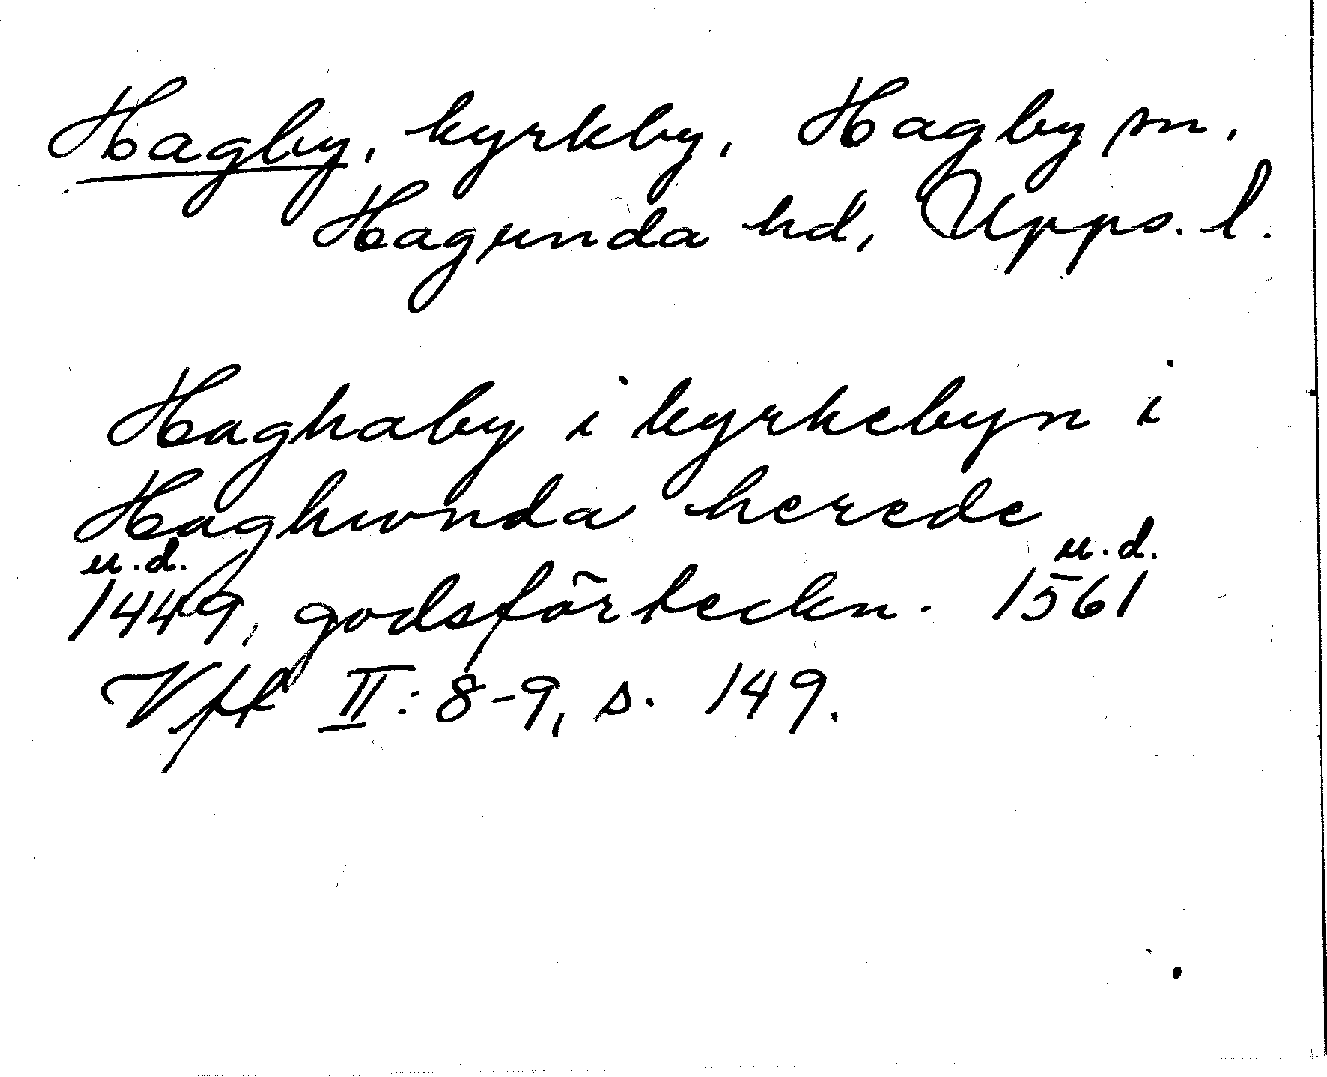 Hagby, kyrkby, Hagby sn,
Hagunda hd, Upps. l.
Haghaby i kyrkebyn i
Haghwnda herede
u.d. u.d.
1449, godsförteckn. 1561
Vfk II: 8-9, s. 149.